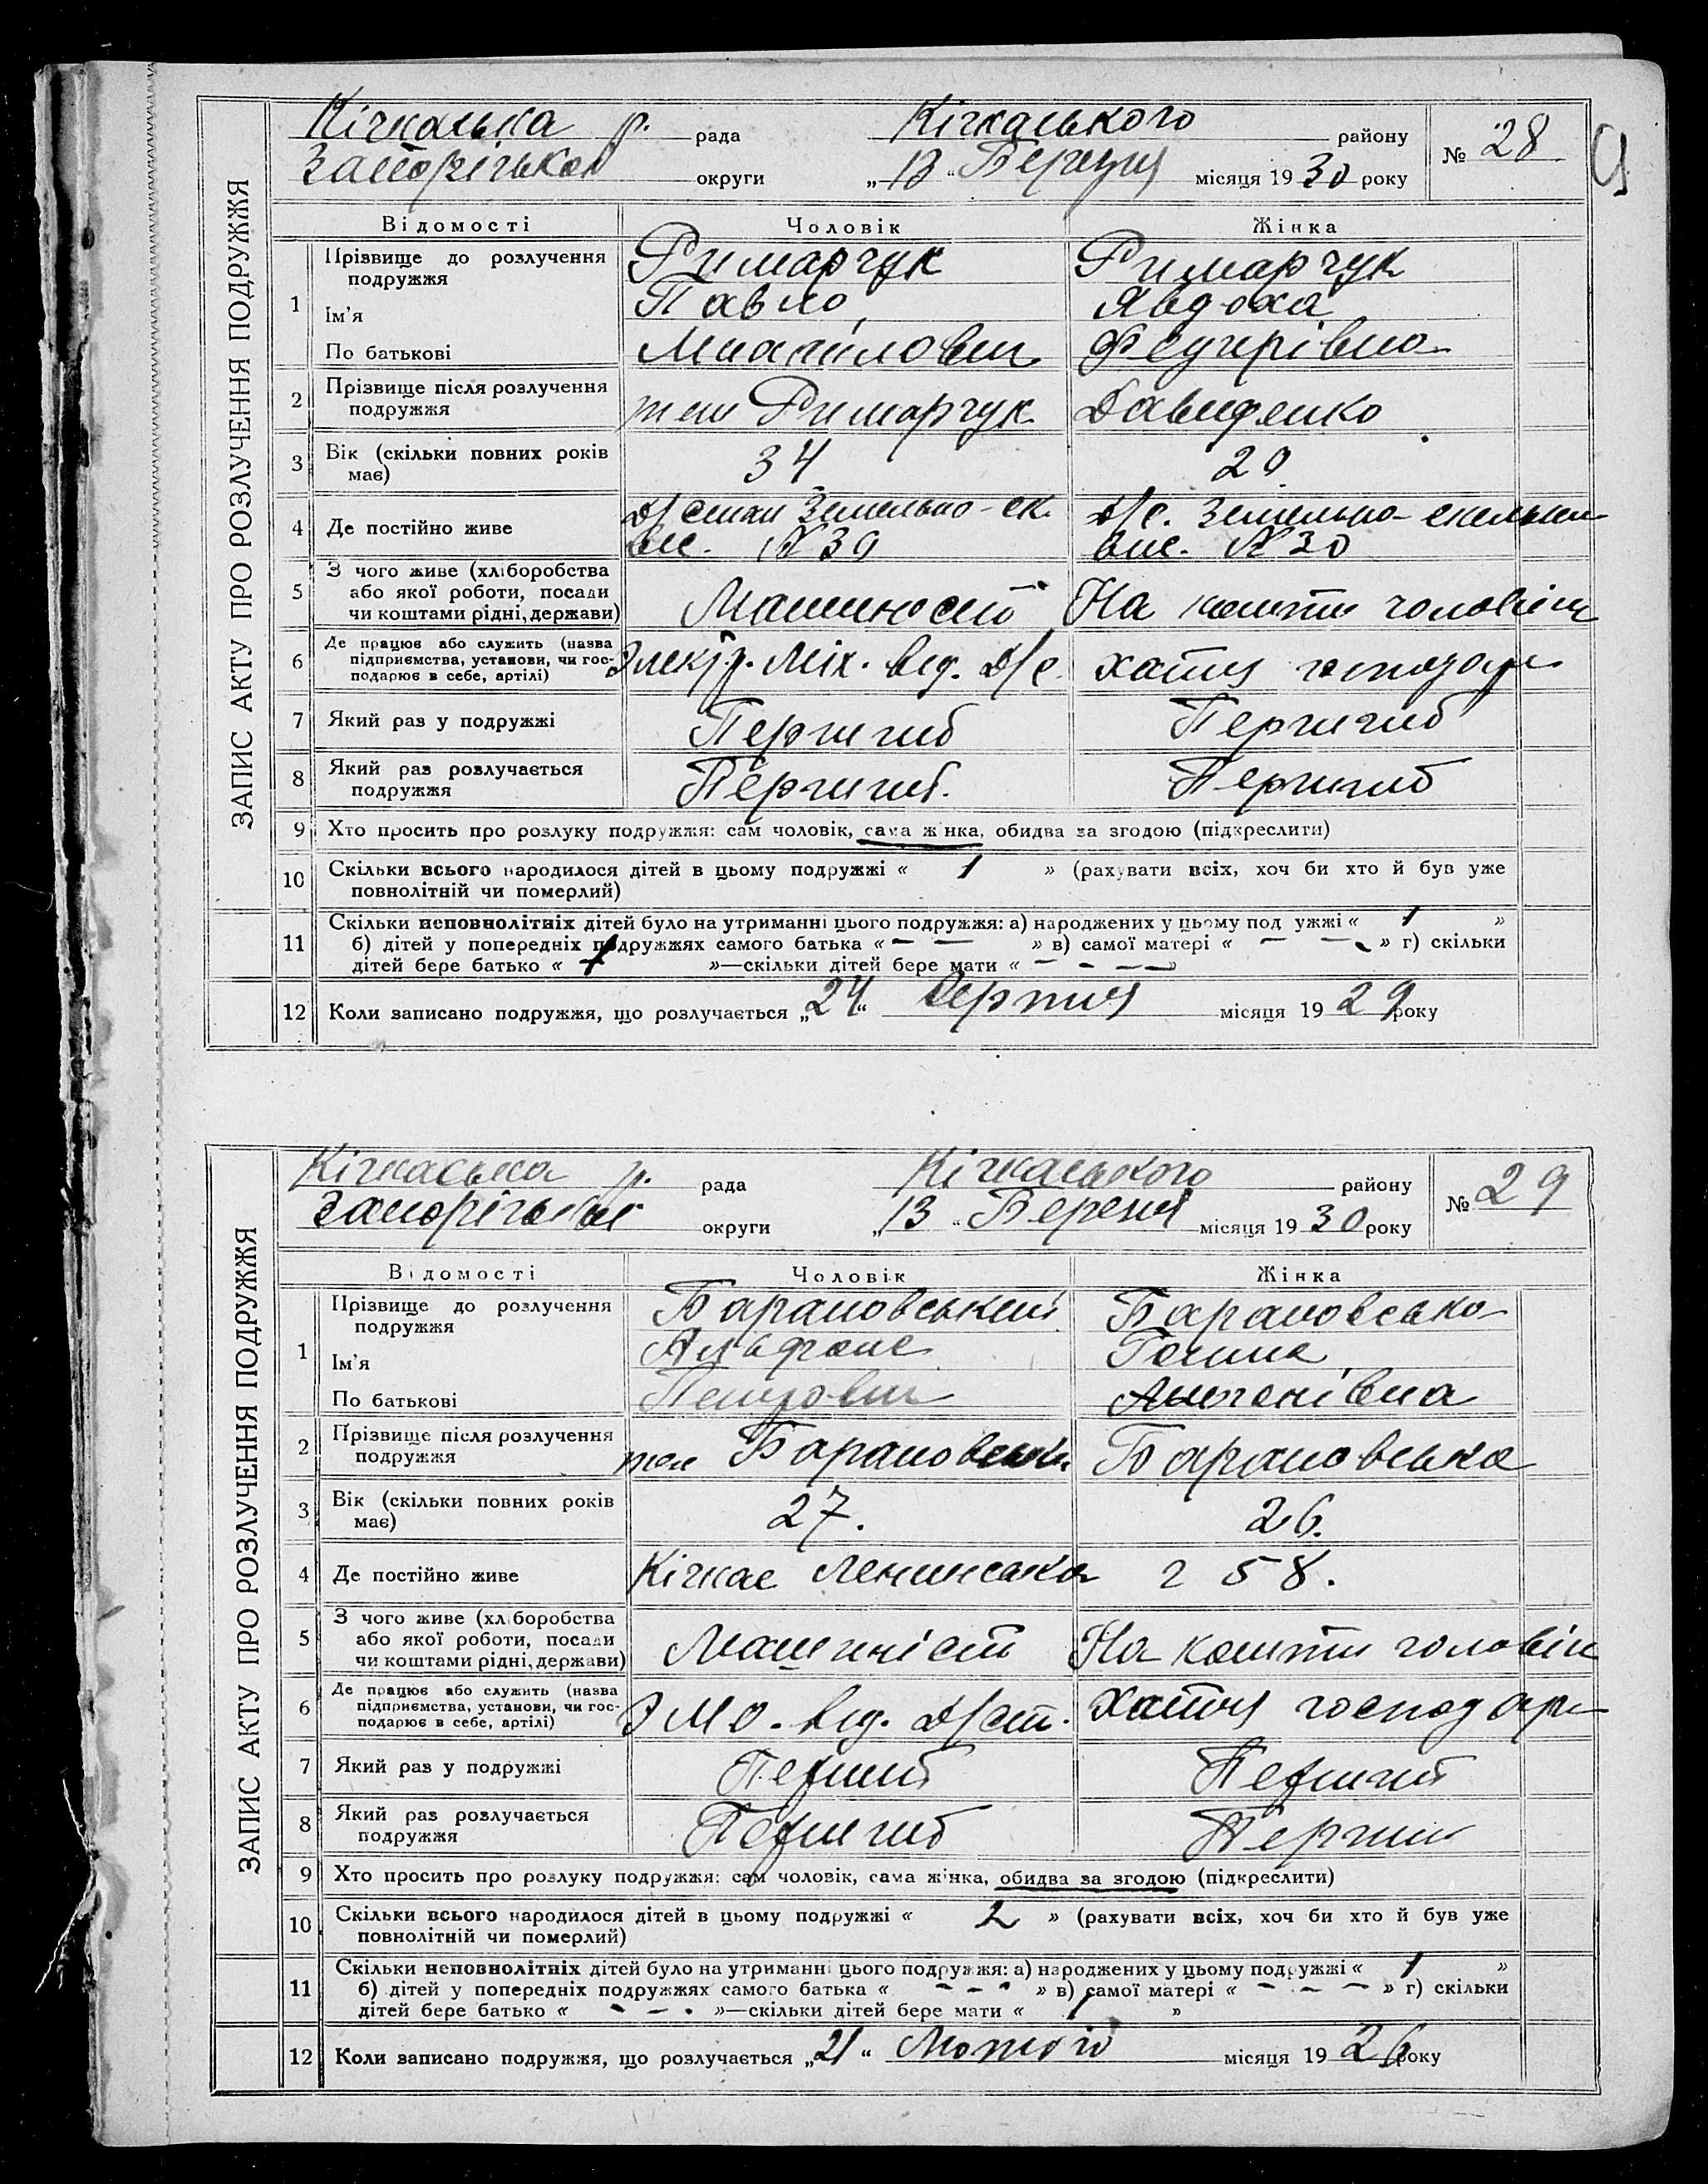 ЗАПИС АКТУ ПРО РОЗЛУЧЕННЯ ПОДРУЖЖЯ
Кічкаська р. рада Кічкаського району № 28
Запорізької округи „13“ Березня місяця 1930 року
Відомості Чоловік Жінка
1 Прізвище до розлучення подружжя Римарчук Римарчук
Ім'я Павло Явдоха
По батькові Михайлович
2 Прізвище після розлучення подружжя теж Римарчук Давиденко
3 Вік (скільки повних років має) 34 29
4 Де постійно живе Д/Селихи Земельно-ск. Д/С. Земельно-скельний
вис. № 30
5 З чого живе (хліборобства або якої роботи, посади чи коштами рідні, держави) Машиніст На кошти чоловіка
6 Де працює або служить (назва підприємства, установи, чи господарює в себе, артілі) Электр. Мех. від. Д/с. хатня господар
7 Який раз у подружжі Перший Перший
8 Який раз розлучається подружжя Перший. Перший
9 Хто просить про розлуку подружжя: сам чоловік, сама жінка, обидва за згодою (підкреслити)
10 Скільки всього народилося дітей в цьому подружжі « 1 » (рахувати всіх, хоч би хто й був уже
повнолітній чи померлий)
11 Скільки неповнолітніх дітей було на утриманні цього подружжя: а) народжених у цьому подружжі « 1 »
б) дітей у попередніх подружжях самого батька « – – » в) самої матері « – – – » г) скільки
дітей бере батько « 1 »—скільки дітей бере мати « – – – »
12 Коли записано подружжя, що розлучається „24“ Серпня місяця 1929 року
ЗАПИС АКТУ ПРО РОЗЛУЧЕННЯ ПОДРУЖЖЯ
Кічкаська р. рада Кічкаського району № 29
Запорізької округи „13“ Березня місяця 1930 року
Відомості Чоловік Жінка
1 Прізвище до розлучення подружжя Барановський Барановська
Ім'я Альфонс
По батькові Петрович Антонівна
2 Прізвище після розлучення подружжя теж Барановськи Барановська
3 Вік (скільки повних років має) 27. 26.
4 Де постійно живе Кічкас Ленинська 2 58.
5 З чого живе (хліборобства або якої роботи, посади чи коштами рідні, держави) Машиніст На кошти чоловік
6 Де працює або служить (назва підприємства, установи, чи господарює в себе, артілі) Э М О. від. Д/ст. хатня господар
7 Який раз у подружжі Перший Перший
8 Який раз розлучається подружжя Перший Перший
9 Хто просить про розлуку подружжя: сам чоловік, сама жінка, обидва за згодою (підкреслити)
10 Скільки всього народилося дітей в цьому подружжі « 2 » (рахувати всіх, хоч би хто й був уже
повнолітній чи померлий)
11 Скільки неповнолітніх дітей було на утриманні цього подружжя: а) народжених у цьому подружжі « 1 »
б) дітей у попередніх подружжях самого батька « – – – » в) самої матері « – – – » г) скільки
дітей бере батько « – – – »—скільки дітей бере мати « 1 »
12 Коли записано подружжя, що розлучається „21“ Лютого місяця 1926 року